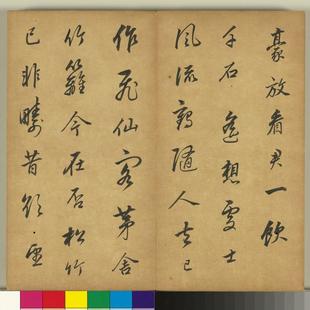 豪放看君一飲
千石遙想處士
風流鶴隨人去已
作飛仙客茅舍
竹籬今在否松竹
已非疇昔欲望